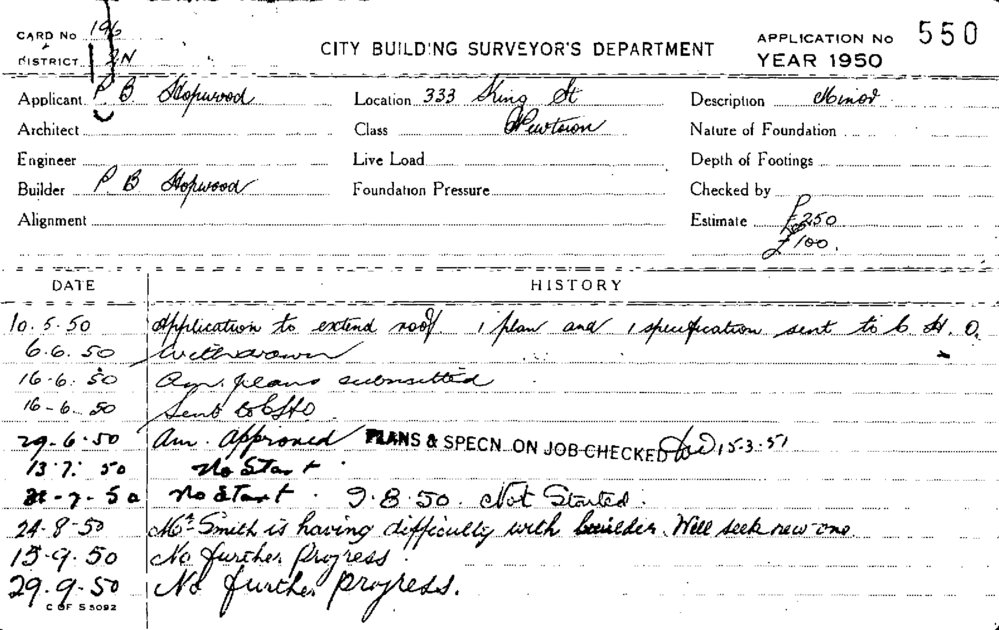 CARD No 196
DISTRICT 2N
CITY BUILDING SURVEYOR'S DEPARTMENT
APPLICATION No 550
YEAR 1950
Applicant P B Hopwood Location 333 King St Description Minor
Architect Class Newtown Nature of Foundation
Engineer Live Load Depth of Footings
Builder P B Hopwood Foundation Pressure Checked by
Alignment Estimate £250
£100.
DATE HISTORY
10.5.50 Application to extend roof 1 plan and 1 specification sent to C.H.O.
6.6.50 Withdrawn
16-6.50 Am. plans submitted
16-6.50 Sent to CHO
29-6-50 Am. Approved PLANS & SPECN. ON JOB CHECKED 15-3-51
13.7.50 No Start.
31-7-50 No Start. 9.8.50. Not Started.
24-8-50 Mr. Smith is having difficulty with builder. Will seek new one.
15-9.50 No further Progress
29.9.50 No further progress.
C OF S 5092